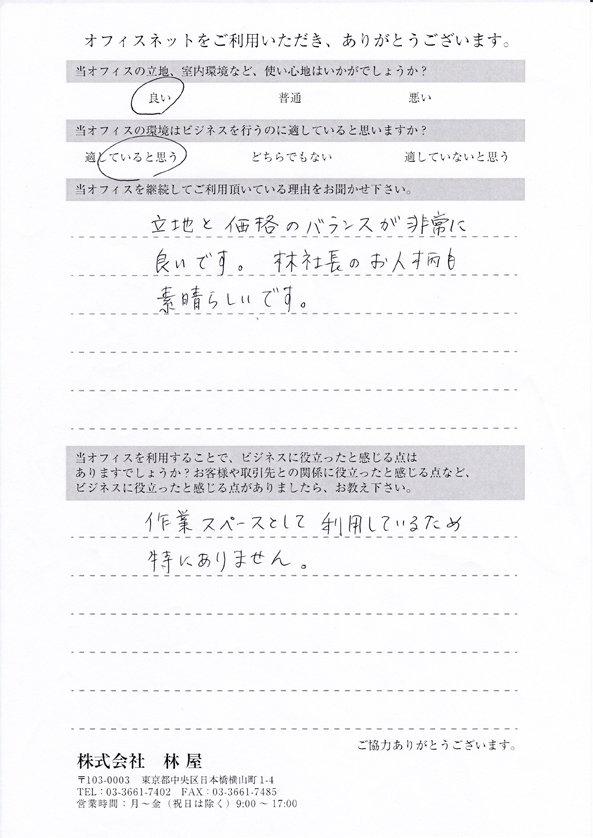 オフィスネットをご利用いただき、ありがとうございます。
当オフィスの立地、室内環境など、使い心地はいかがでしょうか？
良い 普通 悪い
当オフィスの環境はビジネスを行うのに適していると思いますか？
適していると思う どちらでもない 適していないと思う
当オフィスを継続してご利用頂いている理由をお聞かせ下さい。
立地と価格のバランスが非常に
良いです。林社長のお人柄も
素晴らしいです。
当オフィスを利用することで、ビジネスに役立ったと感じる点は
ありますでしょうか？お客様や取引先との関係に役立ったと感じる点など、
ビジネスに役立ったと感じる点がありましたら、お教え下さい。
作業スペースとして利用しているため
特にありません。
ご協力ありがとうございます。
株式会社 林屋
〒103-0003 東京都中央区日本橋横山町1-4
TEL：03-3661-7402 FAX：03-3661-7485
営業時間：月～金（祝日は除く）9:00～17:00